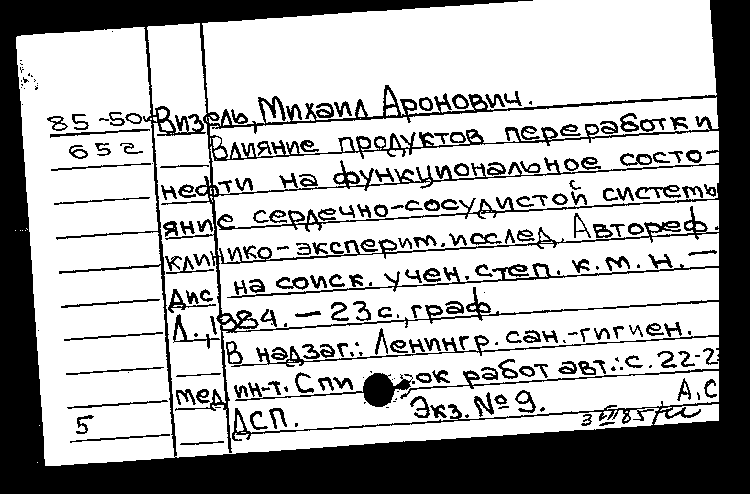 85-50
Визель, Михаил Аронович.
652
Влияние продуктов переработки
нефти на функциональное состо-
яние сердечно-сосудистой системы
клинико-эксперим. исслед. Автореф.
дис на соиск. учен. степ. к.м.н. —
Л., 1984. — 23 с., граф.
В надзаг.: Ленингр. сан.-гигиен.
мед ин-т. Список работ авт.: с. 22-2
ДСП. Экз. № 9. А, С
5